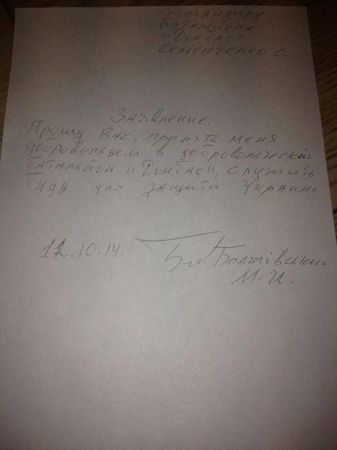 Командиру
Батальона
"Донбас"
Семенченко С.
Заявление.
Прошу Вас, принять меня
добровольцем в добровольческий
батальон "Донбас", служить
буду для защиты Украины
12.10.14.
М. И.